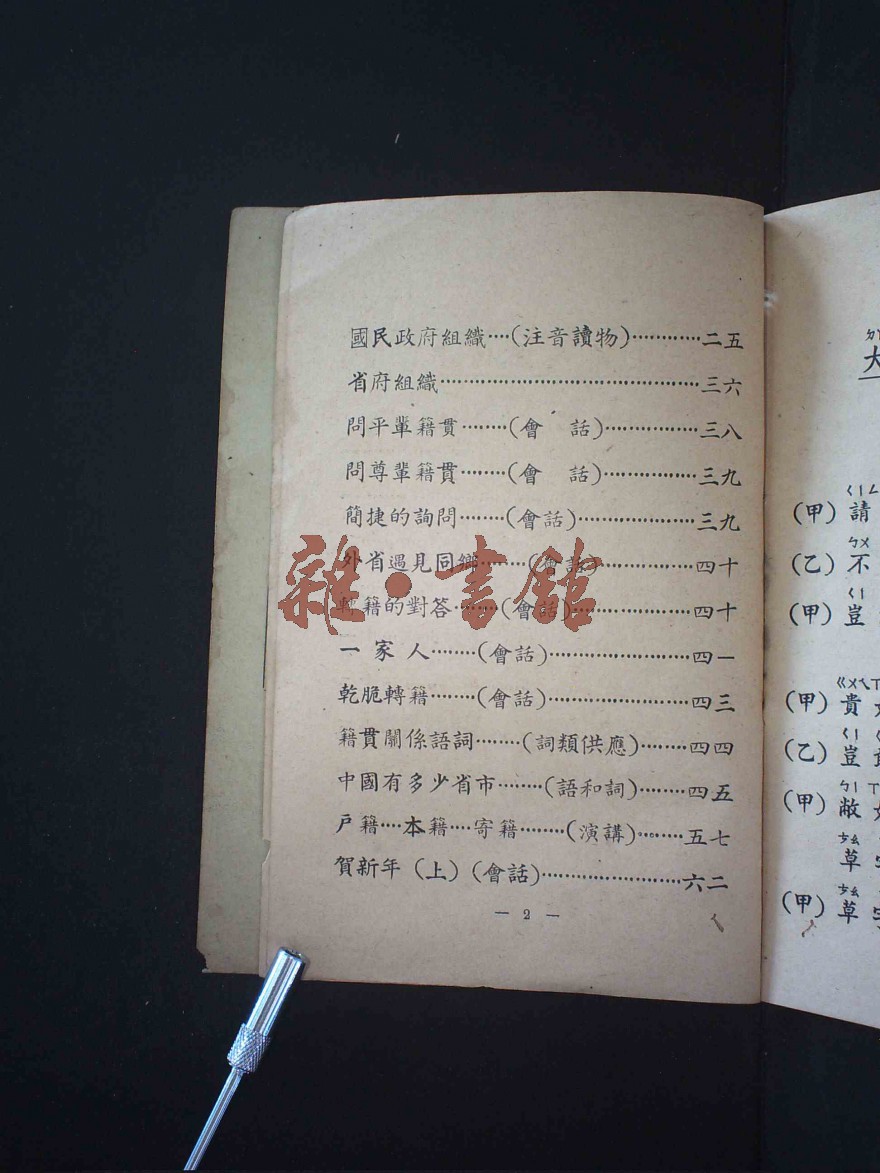 國民政府組織…(注音讀物)…………二五
省府組織……………………………………三六
問平輩籍貫……(會 話)……………三八
問尊輩籍貫……(會 話)……………三九
簡捷的詢問……(會話)………………三九
外省遇見同鄉……(會話)……………四十
轉籍的對答……(會話)………………四十
一家人……(會話)……………………四一
乾脆轉籍……(會話)…………………四三
籍貫關係語詞……(詞類供應)……四四
中國有多少省市……(語和詞)……四五
戶籍…本籍…寄籍……(演講)……五七
賀新年(上)(會話)…………………六二
— 2 —
雜·書館
ㄅㄧ
大
ㄑㄧㄥ
(甲)請
ㄅㄨ
(乙)不
ㄑㄧ
(甲)豈
ㄍㄨㄟㄒ
(甲)貴
ㄑㄧ
(乙)豈
ㄅㄧ ㄒ
(甲)敝
ㄘㄠ
草
ㄘㄠ
(甲)草